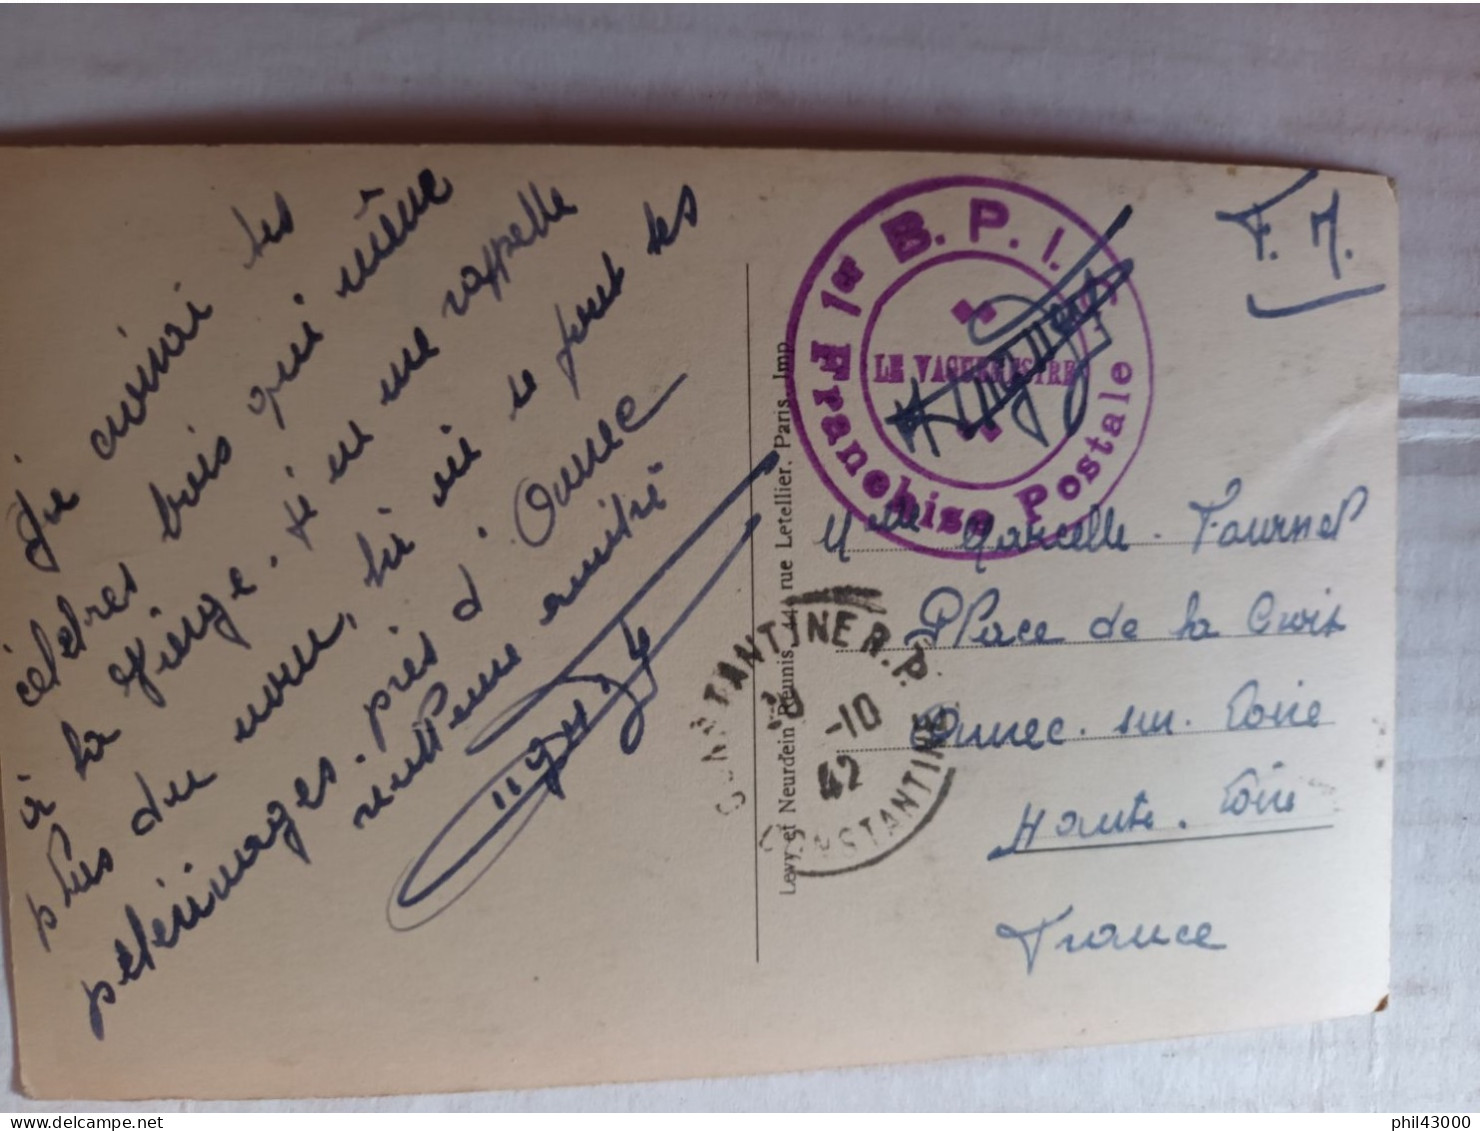 Je connai les
célèbres bois qui même
à la Vierge. Si je me rappelle
plus du nom, là où se font les
pélérinages. près d. Aurec
amitié
Levy et Neurdein Réunis, 44 rue Letellier, Paris. Imp.
1er B. P. I.
LE VAGUEMESTRE
Franchise Postale
F. M.
CONSTANTINE R. P.
-10
42
CONSTANTINE
Melle Marcelle. Fournel
Place de la Croix
Aurec. sur. Loire
Haute. Loire
France
delcampe.net
phil43000